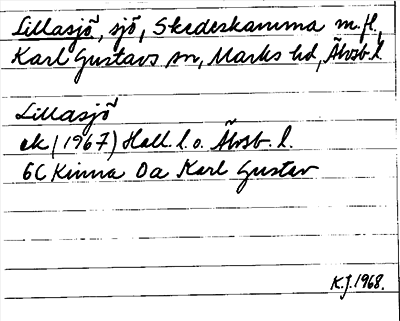 Lillasjö, sjö, Skedeskamma m.fl.,
Karl Gustavs sn, Marks hd, Älvsb. l.
Lillasjö
ek (1967) Hall. l. o. Älvsb. l.
6C Kinna 0a Karl Gustav
K.J. 1968.